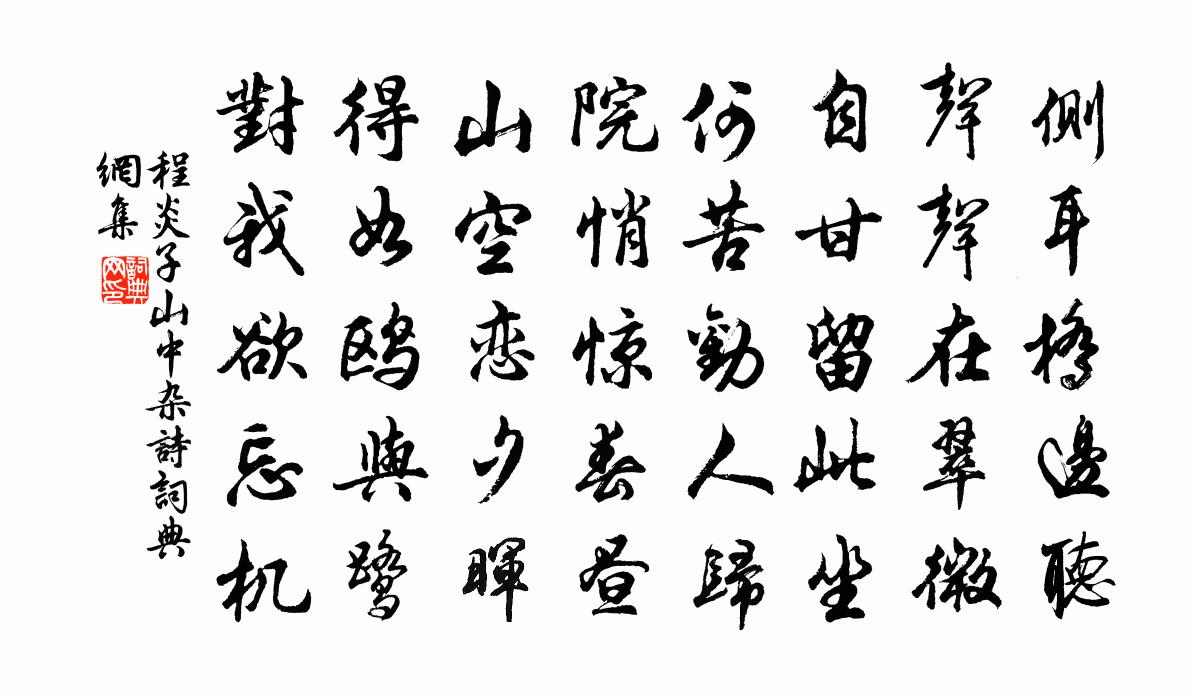 側耳橋邊聽
聲聲在翠微
自甘留此坐
何苦勸人歸
院悄惊春晝
山空恋夕暉
得如鸥與鹭
對我欲忘机
程炎子山中杂詩詞典
網集
詞典网印